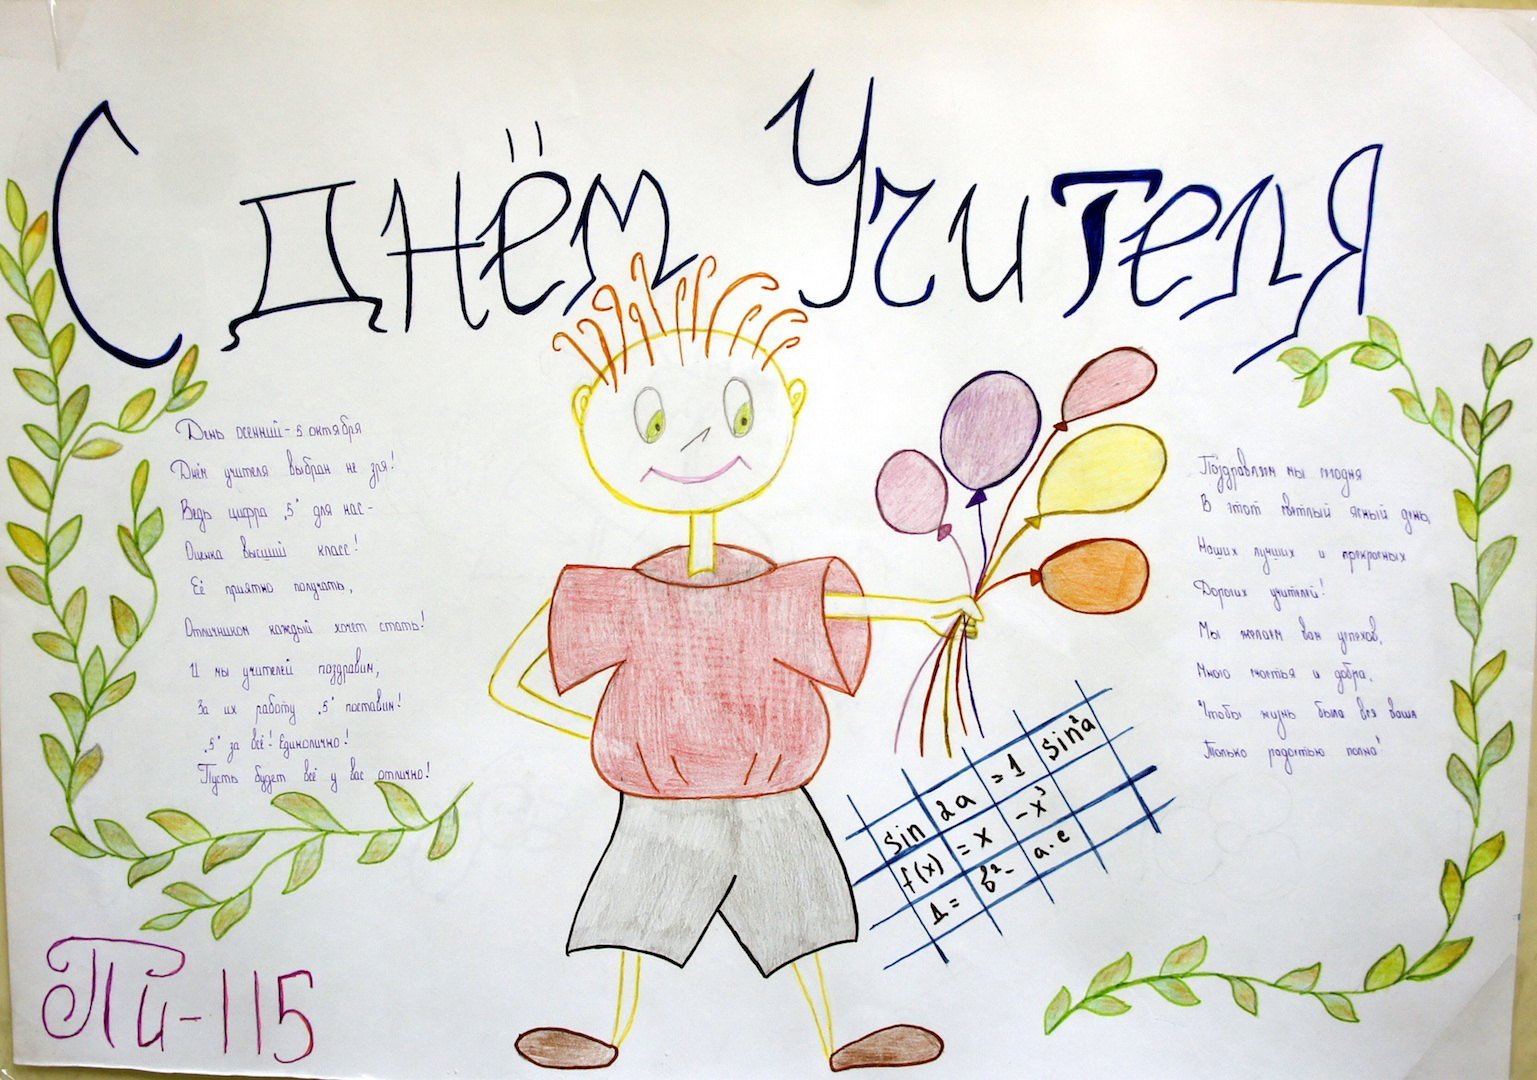 С Днём Учителя
День осенний - 5 октября
Днём учителя выбран не зря!
Ведь цифра „5" для нас -
Оценка высший класс!
Её приятно получать,
Отличником каждый хочет стать!
И мы учителей поздравим,
За их работу „5" поставим!
„5" за всё! Единолично!
Пусть будет всё у вас отлично!
Поздравляем мы сегодня
В этот светлый ясный день,
Наших лучших и прекрасных
Дорогих учителей!
Мы желаем вам успехов,
Много счастья и добра,
Чтобы жизнь была вся ваша
Только радостью полна!
sin 2a = 1 sin²a
f(x) = x - x³
Д = b² - a·c
Пи-115